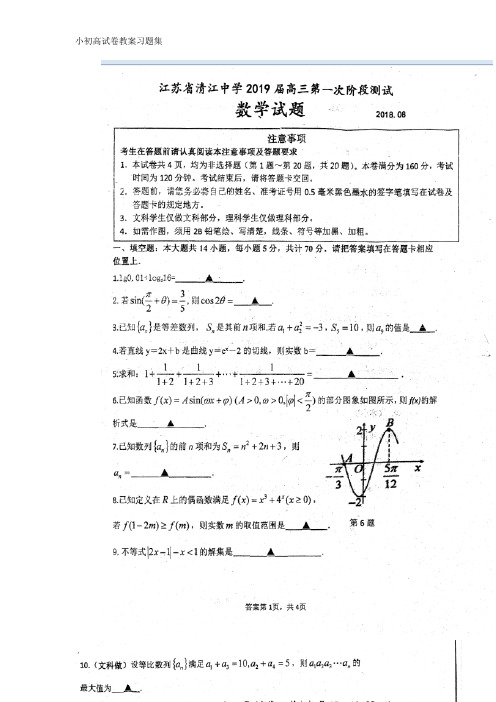 小初高试卷教案习题集
江苏省清江中学 2019 届高三第一次阶段测试
数学试题
2018.08
注意事项
考生在答题前请认真阅读本注意事项及答题要求
1．本试卷共 4 页，均为非选择题（第 1 题～第 20 题，共 20 题）。本卷满分为 160 分，考试
时间为 120 分钟。考试结束后，请将答题卡交回。
2．答题前，请您务必将自己的姓名、准考证号用 0.5 毫米黑色墨水的签字笔填写在试卷及
答题卡的规定地方。
3．文科学生仅做文科部分，理科学生仅做理科部分，
4．如需作图，须用 2B 铅笔绘、写清楚，线条、符号等加黑、加粗。
一、填空题：本大题共 14 小题，每小题 5 分，共计 70 分．请把答案填写在答题卡相应
位置上．
1.lg0.01+log₂16=____▲____.
2. 若 sin(π/2+θ)=3/5, 则 cos2θ = ▲ .
3.已知{aₙ}是等差数列， Sₙ 是其前 n 项和.若 a₁+a₂²=-3, S₅=10 , 则 a₉ 的值是 ▲ .
4.若直线 y=2x+b 是曲线 y=eˣ-2 的切线，则实数 b= ▲ .
5.求和：1+1/(1+2)+1/(1+2+3)+⋯+1/(1+2+3+⋯+20) = ▲ .
6.已知函数 f(x)=Asin(ωx+φ) (A>0,ω>0,|φ|<π/2) 的部分图象如图所示，则 f(x)的解
析式是 ▲ .
7.已知数列{aₙ}的前 n 项和为 Sₙ=n²+2n+3，则
aₙ= ▲ .
8.已知定义在 R 上的偶函数满足 f(x)=x³+4ˣ(x≥0)，
若 f(1-2m)≥f(m)，则实数 m 的取值范围是 ▲ .
2 y B
A O
-π/3 5π/12 x
-2
第 6 题
9. 不等式|2x-1|-x<1 的解集是 ▲ .
答案第 1页，共 4页
10.（文科做）设等比数列{aₙ}满足 a₁+a₃=10,a₂+a₄=5，则 a₁a₂a₃⋯aₙ 的
最大值为 ▲ .